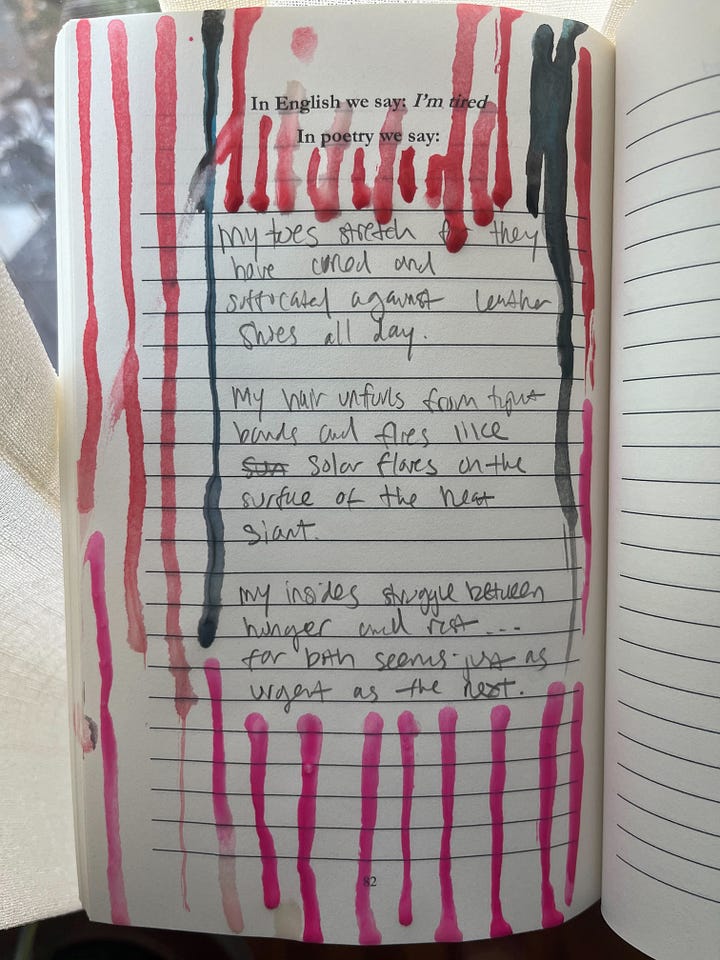 In English we say: I'm tired
In poetry we say:
My toes stretch for they
have coiled and
suffocated against leather
shoes all day.
My hair unfurls from tight
bands and fires like
sun solar flares on the
surface of the heat
giant.
My insides struggle between
hunger and rest...
for both seems just as
urgent as the next.
82